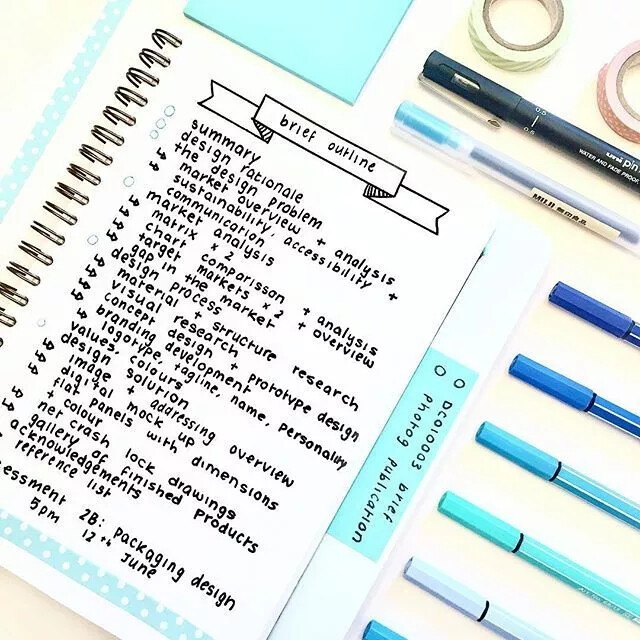 brief outline
summary
design rationale
the design problem
↳ market overview + analysis
↳ sustainability, accessibility +
communication
market analysis
↳ matrix x 2
↳ chart comparisson + analysis
↳ target markets x 2 + overview
↳ gap in the market
design process
↳ material + structure research
↳ visual research
↳ concept design + prototype design
↳ branding development
↳ logotype, tagline, name, personality
values, colours
design solution
↳ image + addressing overview
↳ digital mock up
↳ flat panels with dimensions
+ colour
↳ net crash lock drawings
↳ gallery of finished products
acknowledgements
reference list
essment 2B: packaging design
5pm 12th June
DCO10003 brief
photog publication
0.5
0.5
uni pin
WATER AND FADE PROOF
MUJI 無印良品